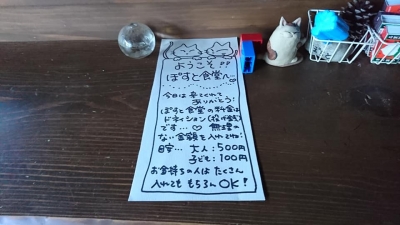 ようこそ!!
ぽすと食堂へ
今日は来てくれて
ありがとう!
ぽすと食堂の料金は
ドネイション(投げ銭)
です…♡ 無理の
ない金額を入れてね!
目安… 大人:500円
子ども:100円
お金持ちの人はたくさん
入れても もちろんOK!